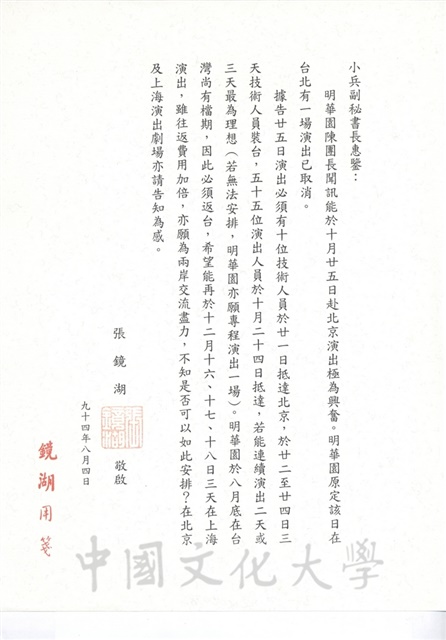 小兵副秘書長惠鑒：
明華園陳團長聞訊能於十月廿五日赴北京演出極為興奮。明華園原定該日在
台北有一場演出已取消。
據告廿五日演出必須有十位技術人員於廿一日抵達北京，於廿二至廿四日三
天技術人員裝台，五十五位演出人員於十月二十四日抵達，若能連續演出二天或
三天最為理想（若無法安排，明華園亦願專程演出一場）。明華園於八月底在台
灣尚有檔期，因此必須返台，希望能再於十二月十六、十七、十八日三天在上海
演出，雖往返費用加倍，亦願為兩岸交流盡力，不知是否可以如此安排？在北京
及上海演出劇場亦請告知為感。
張鏡湖
敬啟
九十四年八月四日
鏡湖用箋
中國文化大學